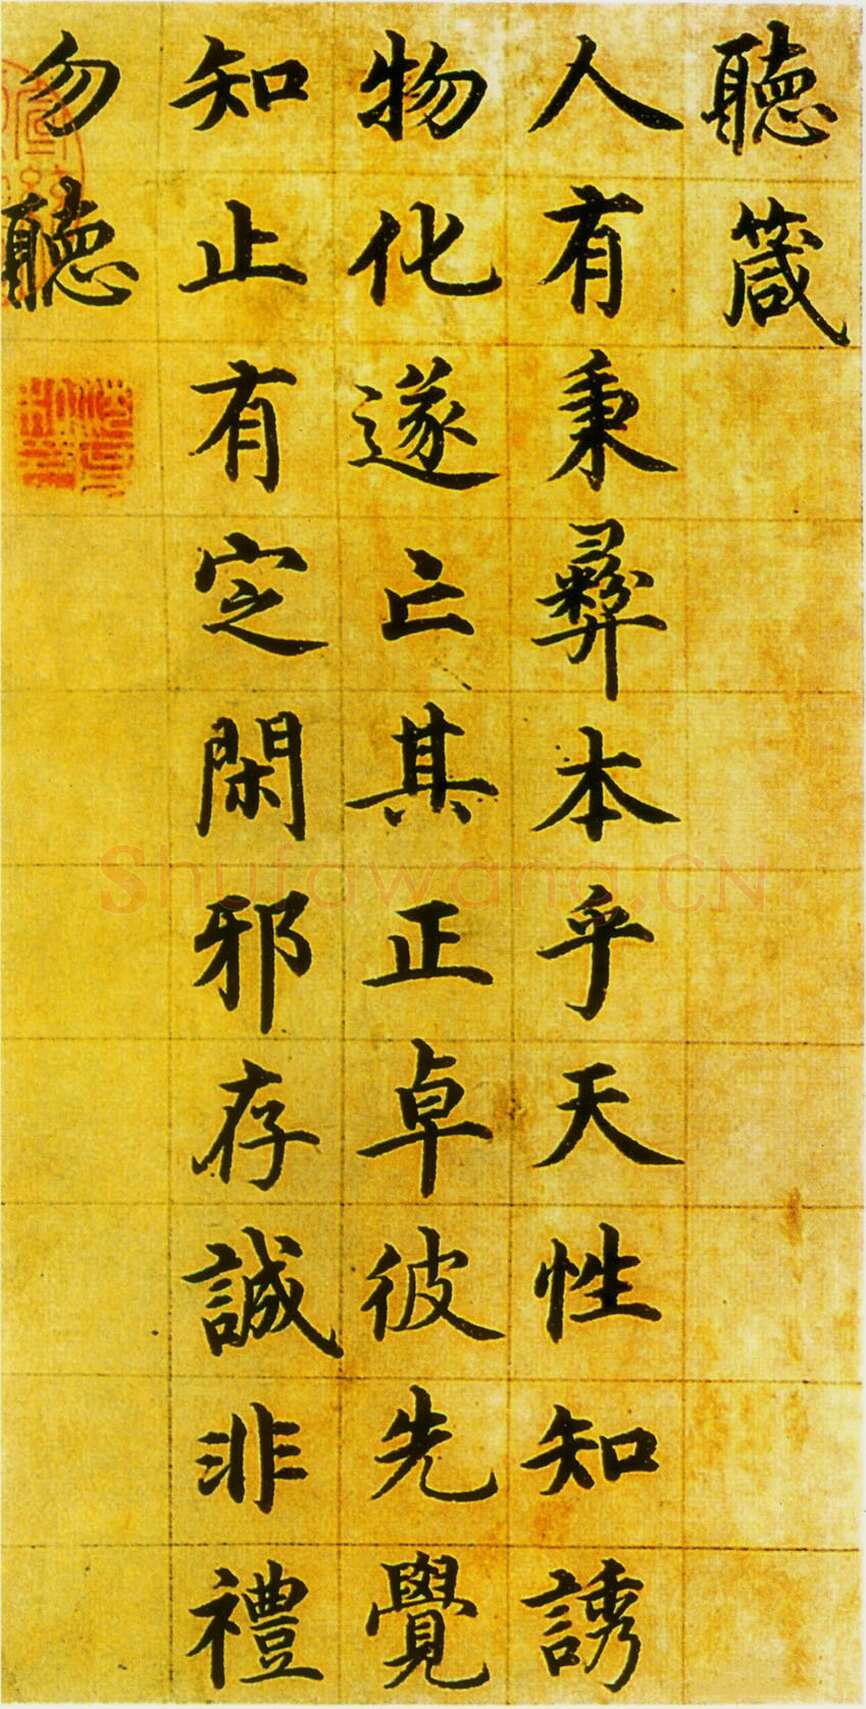 聽箴
人有秉彝本乎天性知誘
物化遂亡其正卓彼先覺
知止有定閑邪存誠非禮
勿聽
Shufawang.CN